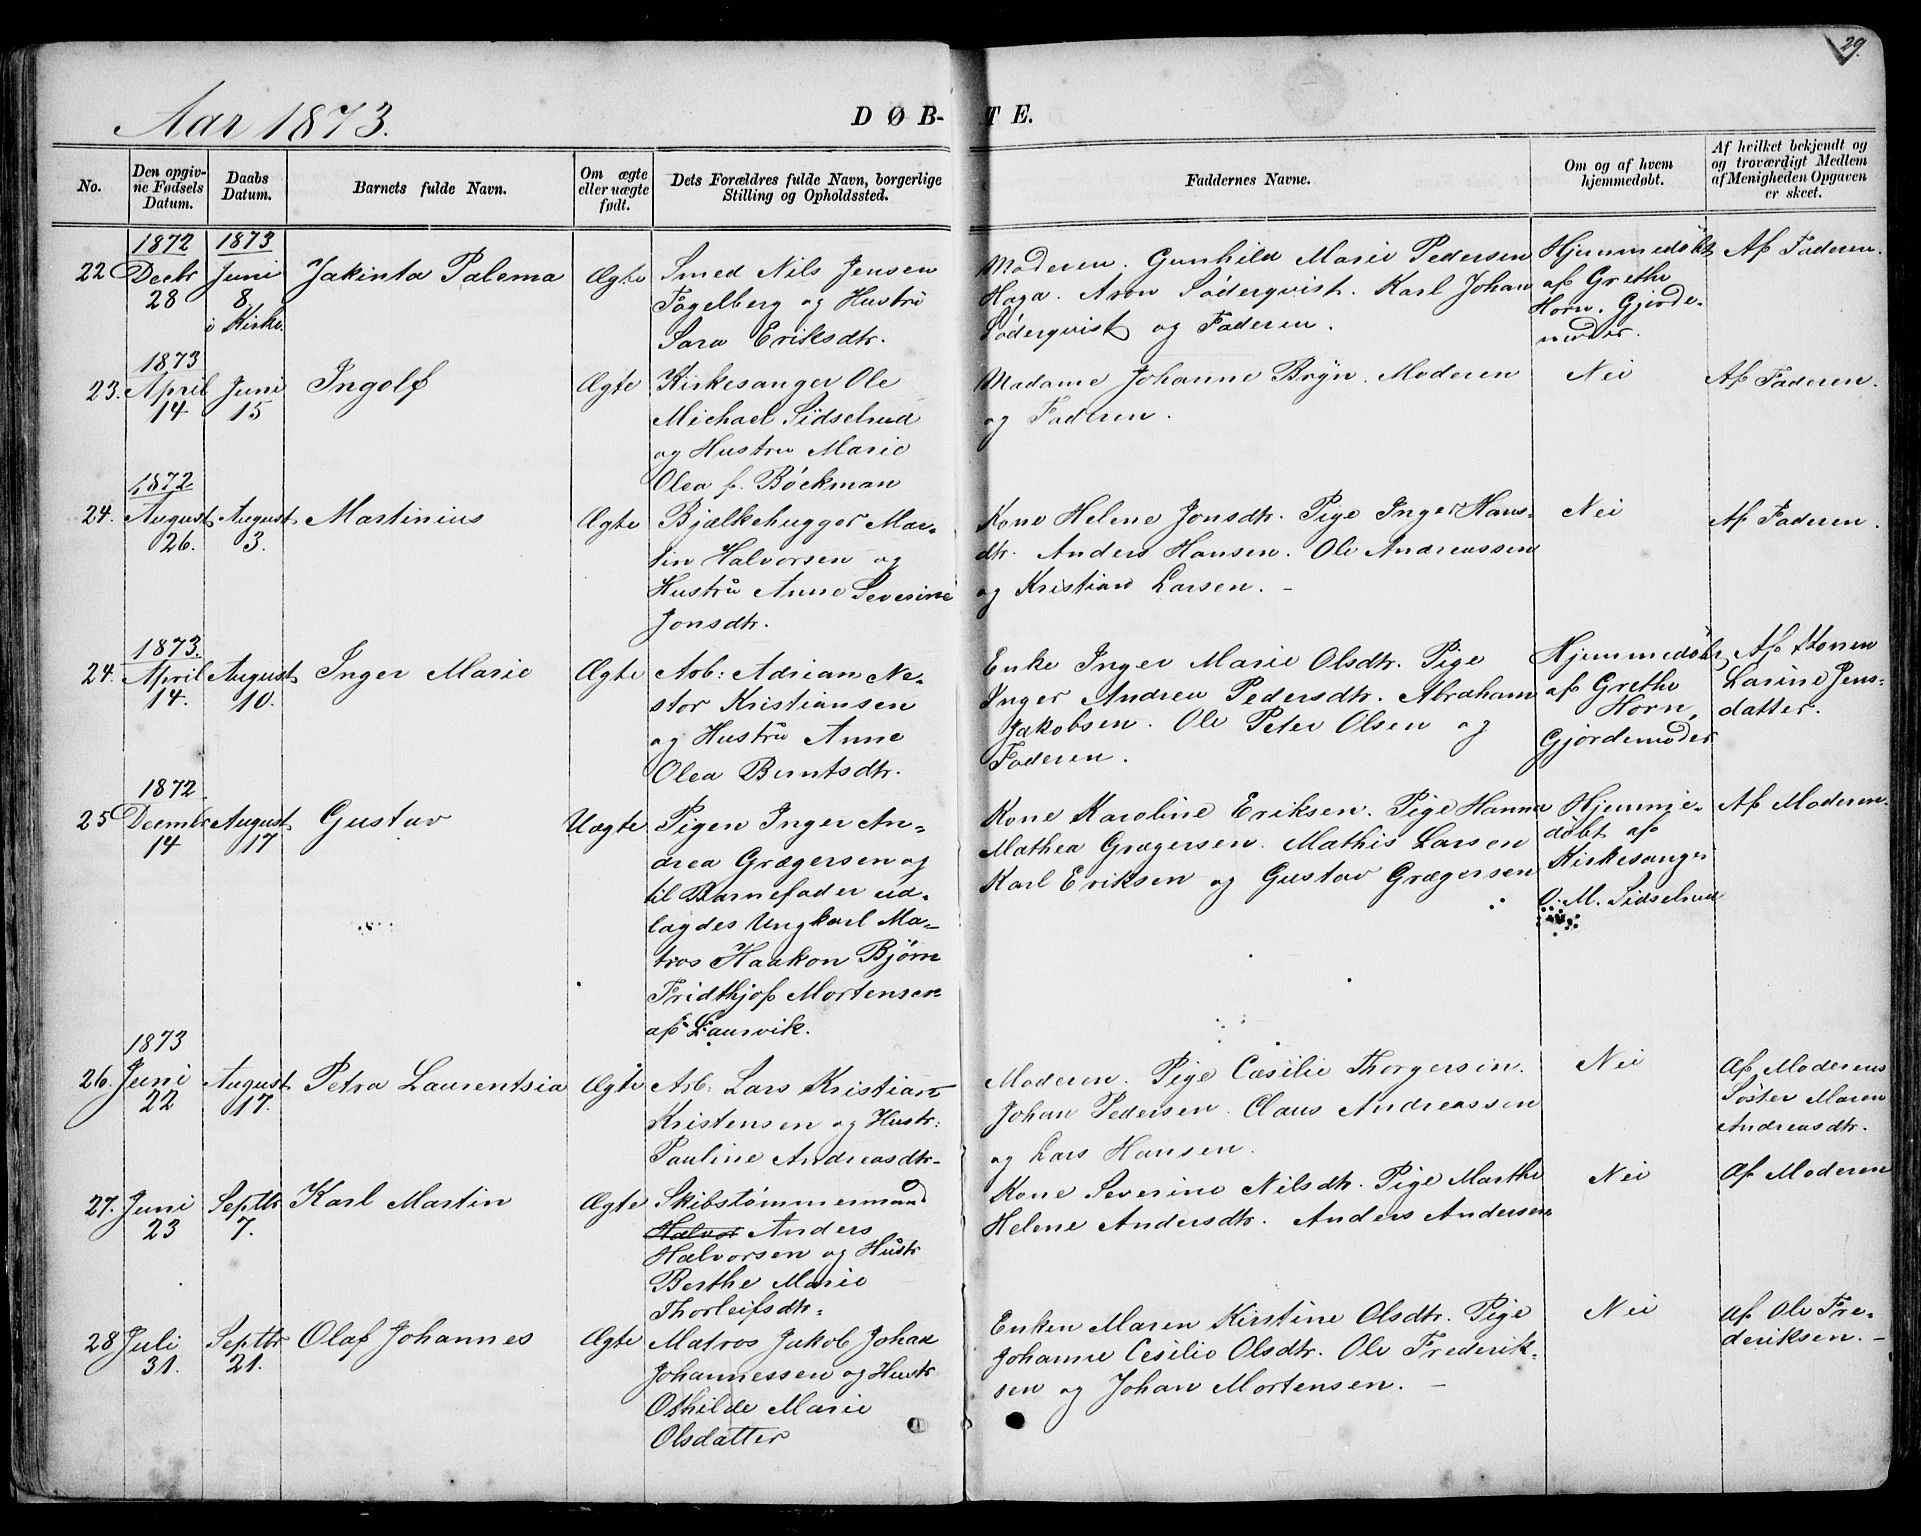 29.
Aar 1873.
DØB-TE.
No.
Den opgiv-
ne Fødsels
Datum.
Daabs
Datum.
Barnets fulde Navn.
Om ægte
eller uægte
født.
Dets Forældres fulde Navn, borgerlige
Stilling og Opholdssted.
Faddernes Navne.
Om og af hvem
hjemmedøbt.
Af hvilket bekjendt og
og troværdigt Medlem
af Menigheden Opgaven
er skeet.
22
1872
Decbr
28
1873
Juni
8
i Kirke.
Jakinta Palema
Ægte
Smed Nils Jensen
Fagelberg og Hustru
Sara Eriksdtr.
Moderen. Gunhild Marie Pedersen
Haga. Aron Söderqvist. Karl Johan
Söderqvist og Faderen.
Hjemmedøbt
af Grethe
Horn. Gjorde-
moder.
Af Faderen.
23.
1873
April
14
Juni
15
Ingolf
Ægte
Kirkesanger Ole
Michael Sidselrud
og Hustru Marie
Olea f. Böckman
Madame Johanne Bryn. Moderen
og Faderen.
Nei
Af Faderen.
24.
1872
August
26.
August
3.
Martinius
Ægte
Bjælkehugger Mar-
tin Halvorsen og
Hustru Anne Severine
Jonsdtr.
Kone Helene Jonsdtr. Pige Inger Hans-
dtr. Anders Hansen. Ole Andreassen
og Kristian Larsen. -
Nei
Af Faderen.
24.
1873.
April
14.
August
10.
Inger Marie
Ægte
Arb: Adrian Ne-
stor Kristiansen
og Hustru Anne
Olea Berntsdtr.
Enke Inger Marie Olsdtr. Pige
Inger Andrea Pedersdtr. Abraham
Jakobsen. Ole Peter Olsen og
Faderen.
Hjemmedøbt
af Grethe
Horn,
Gjordemoder
Af Konen
Larine Jens-
datter.
25
1872
Decmbr
14
August
17
Gustav
Uægte
Pigen Inger An-
drea Grægersen og
til Barnefader ud-
lagdes Ungkarl Ma-
tros Haakon Bjørn
Fridthjof Mortensen
af Laurvik.
Kone Karoline Eriksen. Pige Hanna
Mathea Grægersen. Mathis Larsen
Karl Eriksen og Gustav Grægersen
Hjemme-
døbt af
Kirkesanger
O. M. Sidselrud
Af Moderen.
26.
1873
Juni
22
August
17.
Petra Laurentsia
Ægte
Arb: Lars Kristian
Kristensen og Hustr:
Pauline Andreasdtr.
Moderen. Pige Cæsilie Thorgersin.
Johan Pedersen. Claus Andreassen
og Lars Hansen.
Nei
Af Moderens
Søster Maren
Andreasdtr.
27.
Juni
23
Septbr
7.
Karl Martin
Ægte
Skibstømmermand
Halvor Anders
Halvorsen og Hustr
Berthe Marie
Thorleifsdtr.
Kone Severine Nilsdtr. Pige Marthe
Helene Andersdtr. Anders Andersen
Nei
Af Moderen
28
Juli
31.
Septbr
21.
Olaf Johannes
Ægte
Matros Jakob Johan
Johannessen og Hustr
Othilde Marie
Olsdatter
Enken Maren Kirstine Olsdtr. Pige
Johanne Cesilie Olsdtr. Ole Frederik-
sen og Johan Mortensen. -
Nei
Af Ole Fre-
deriksen. -